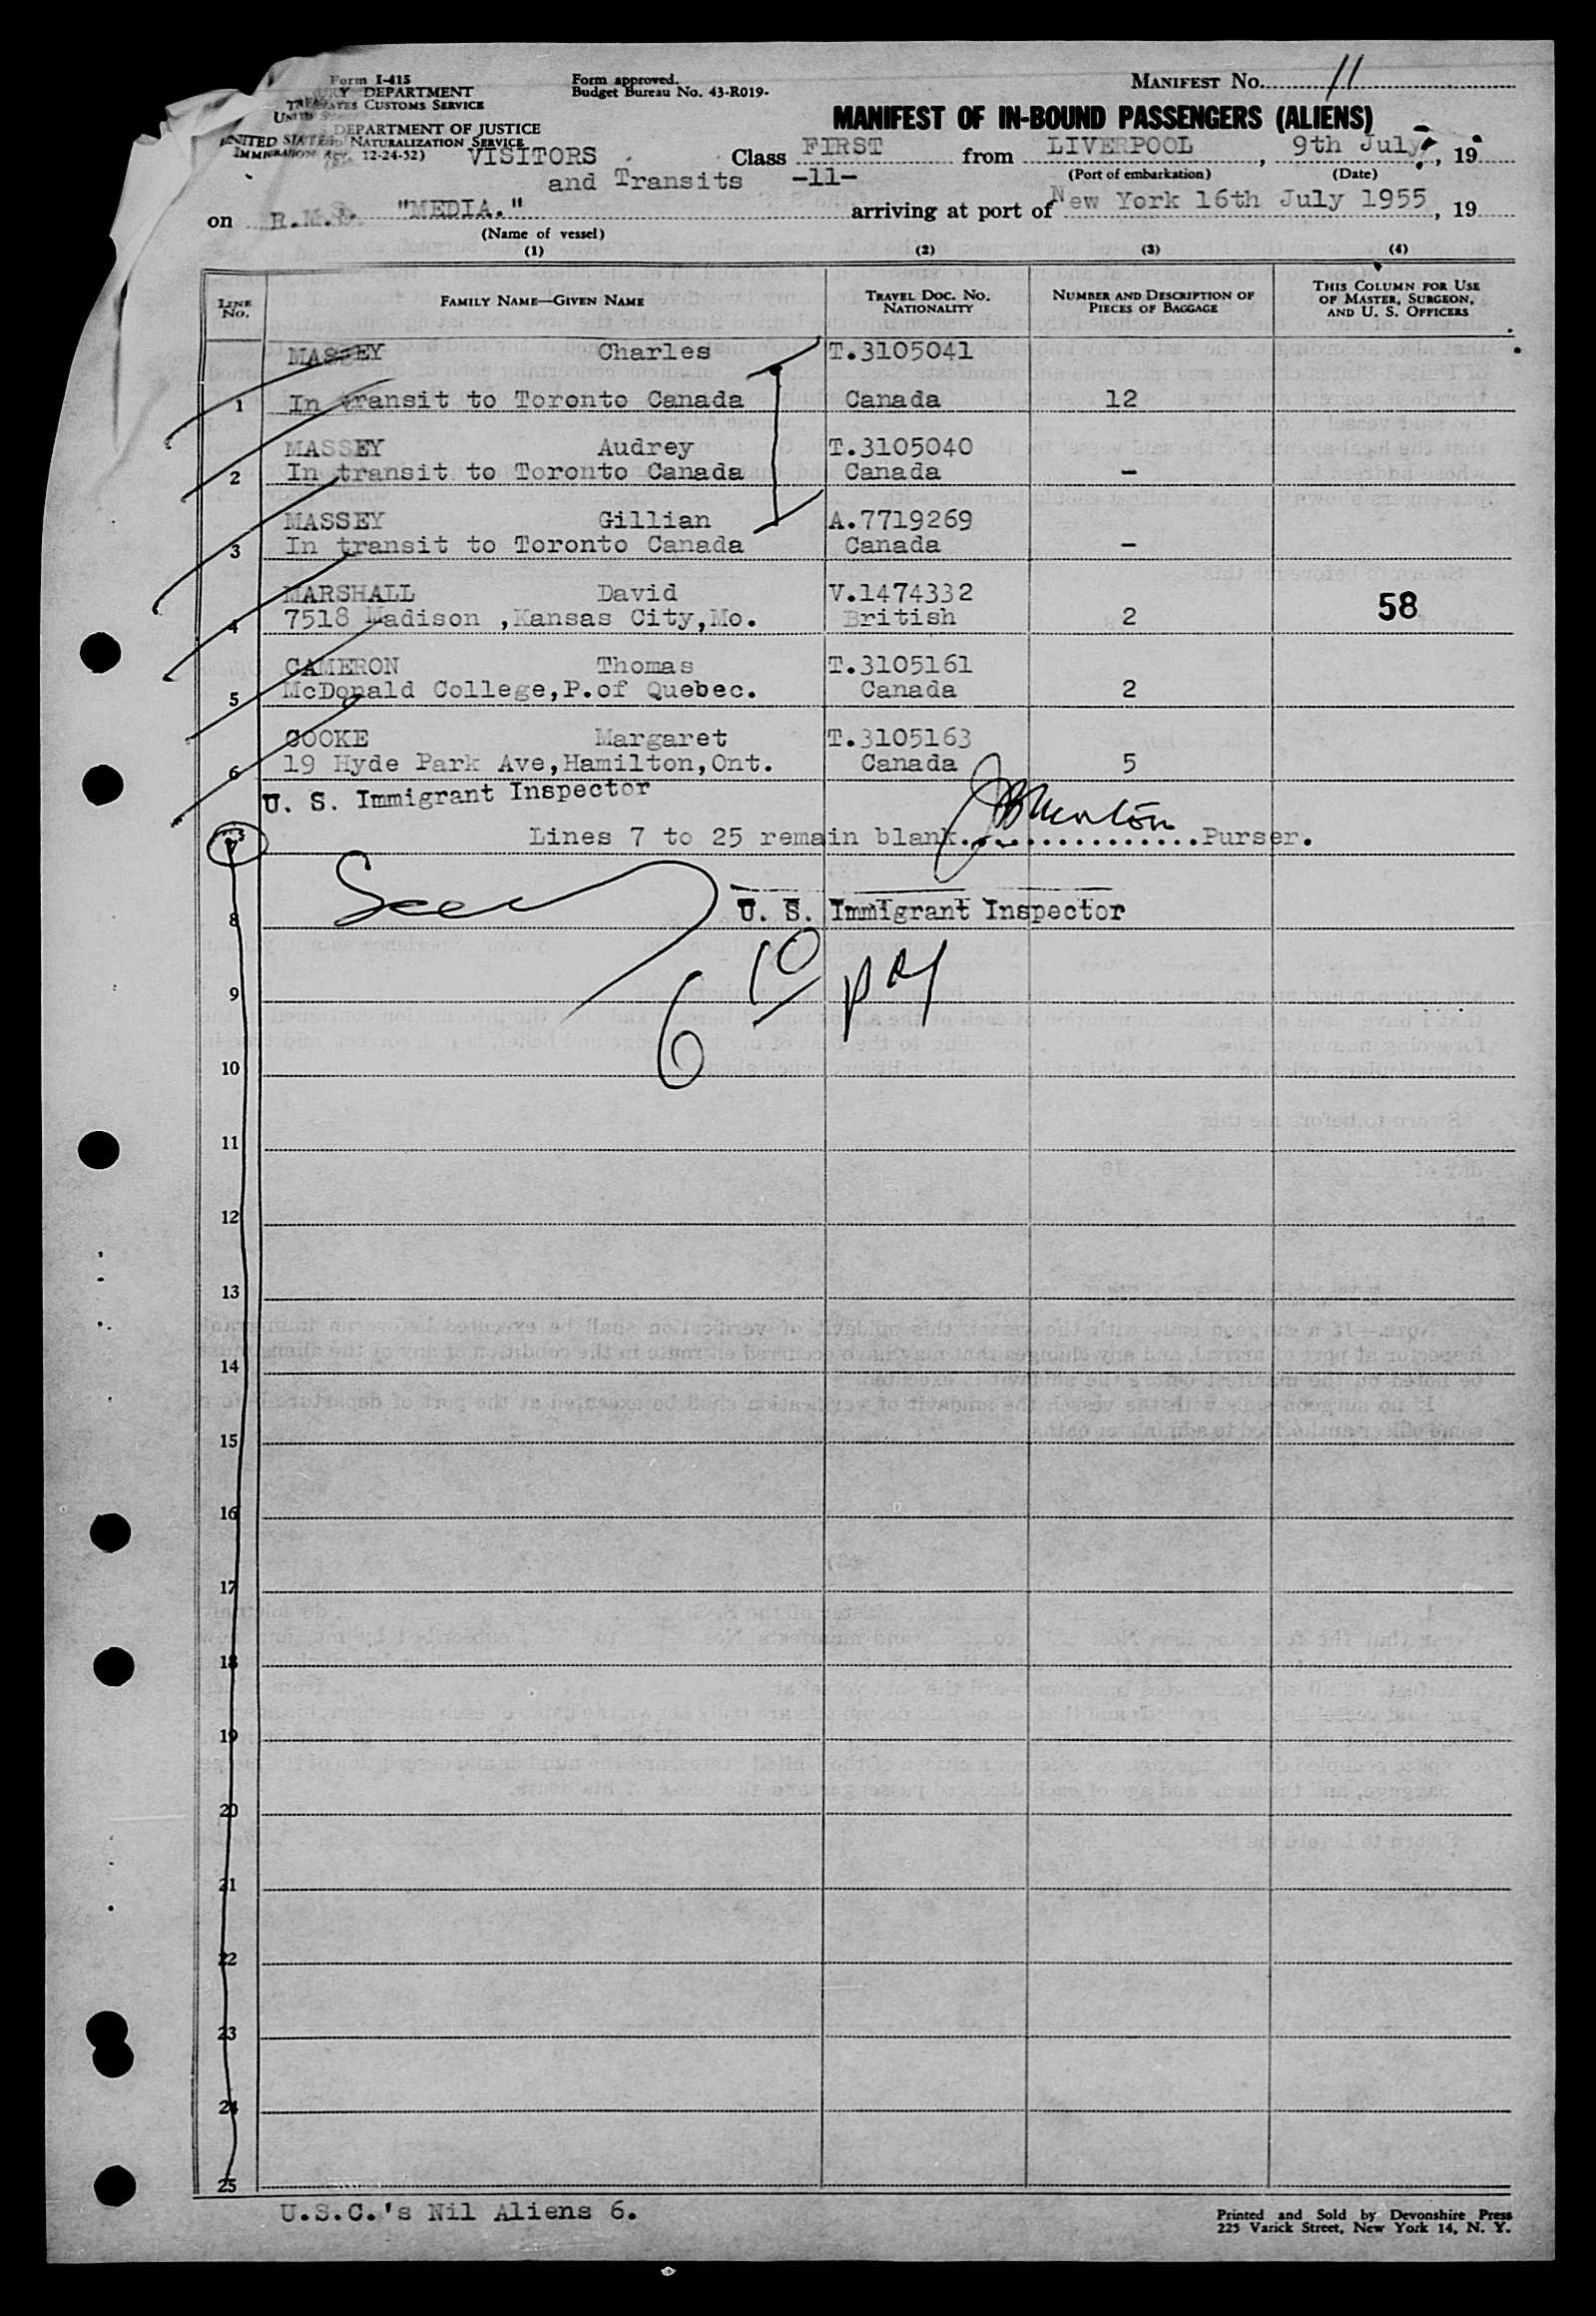 Form I-415
TREASURY DEPARTMENT
UNITED STATES CUSTOMS SERVICE
DEPARTMENT OF JUSTICE
UNITED STATES NATURALIZATION SERVICE
IMMIGRATION 12-24-52)
Form approved.
Budget Bureau No. 43-R019-
MANIFEST NO. 11
MANIFEST OF IN-BOUND PASSENGERS (ALIENS)
VISITORS Class FIRST from LIVERPOOL, 9th July, 19
and Transits -11- (Port of embarkation) (Date)
on R.M.S. "MEDIA." arriving at port of New York 16th July 1955, 19
(Name of vessel)
(1) (2) (3) (4)
LINE NO. FAMILY NAME—GIVEN NAME TRAVEL DOC. NO. NATIONALITY NUMBER AND DESCRIPTION OF PIECES OF BAGGAGE THIS COLUMN FOR USE OF MASTER, SURGEON, AND U. S. OFFICERS
MASSEY Charles T.3105041
1 In transit to Toronto Canada Canada 12
MASSEY Audrey T.3105040
2 In transit to Toronto Canada Canada -
MASSEY Gillian A.7719269
3 In transit to Toronto Canada Canada -
MARSHALL David V.1474332 58
4 7518 Madison ,Kansas City,Mo. British 2
CAMERON Thomas T.3105161
5 McDonald College,P.of Quebec. Canada 2
COOKE Margaret T.3105163
6 19 Hyde Park Ave,Hamilton,Ont. Canada 5
U. S. Immigrant Inspector
7 Lines 7 to 25 remain blank. Purser.
8 U. S. Immigrant Inspector
9
6 10
10
11
12
13
14
15
16
17
18
19
20
21
22
23
24
25
U.S.C.'s Nil Aliens 6.
Printed and Sold by Devonshire Press
225 Varick Street, New York 14, N. Y.